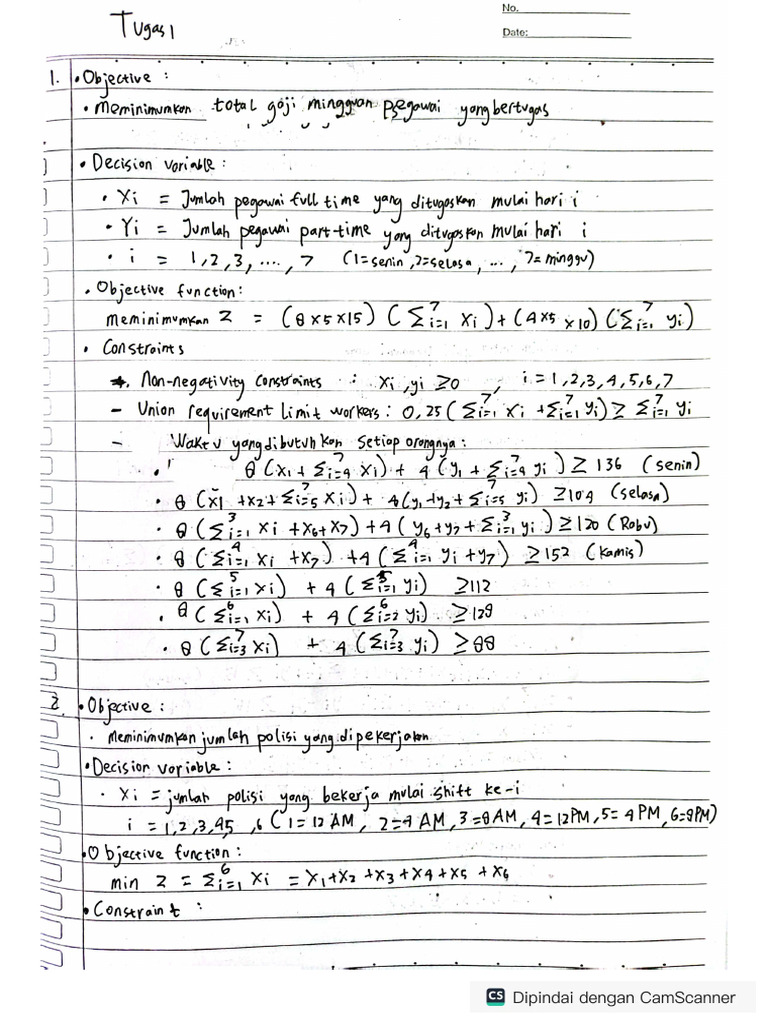 Tugas 1
No.
Date:
1. • Objective :
• meminimumkan total gaji mingguan pegawai yang bertugas
• Decision variable :
• Xi = Jumlah pegawai full time yang ditugaskan mulai hari i
• Yi = Jumlah pegawai part-time yang ditugaskan mulai hari i
• i = 1,2,3, ...., 7 (1=senin, 2=selasa, ... , 7=minggu)
• Objective function:
meminimumkan Z = (8 x 5 x 15) (Σ⁷i=1 Xi) + (4 x 5 x 10) (Σ⁷i=1 yi)
• Constraints
Non-negativity constraints : xi, yi ≥ 0 , i = 1,2,3,4,5,6,7
- Union requirement limit workers : 0,25 (Σ⁷i=1 Xi + Σ⁷i=1 yi) ≥ Σ⁷i=1 yi
- Waktu yang dibutuhkan setiap orangnya :
• 8 (x1 + Σ⁷i=4 xi) + 4 (y1 + Σ⁷i=4 yi) ≥ 136 (senin)
• 8 (x1 + x2 + Σ⁷i=5 xi) + 4 (y1 + y2 + Σ⁷i=5 yi) ≥ 104 (selasa)
• 8 (Σ³i=1 xi + x6 + x7) + 4 (y6 + y7 + Σ³i=1 yi) ≥ 120 (Rabu)
• 8 (Σ⁴i=1 xi + x7) + 4 (Σ⁴i=1 yi + y7) ≥ 152 (kamis)
• 8 (Σ⁵i=1 xi) + 4 (Σ⁵i=1 yi) ≥ 112
• 8 (Σ⁶i=1 xi) + 4 (Σ⁶i=2 yi) ≥ 128
• 8 (Σ⁷i=3 xi) + 4 (Σ⁷i=3 yi) ≥ 88
2. • Objective :
• meminimumkan jumlah polisi yang dipekerjakan
• Decision variable :
• Xi = jumlah polisi yang bekerja mulai shift ke-i
i = 1,2,3,4,5,6 (1 = 12 AM, 2 = 4 AM, 3 = 8 AM, 4 = 12 PM, 5 = 4 PM, 6 = 8 PM)
• Objective function :
min Z = Σ⁶i=1 Xi = X1 + X2 + X3 + X4 + X5 + X6
• Constraint :
CS Dipindai dengan CamScanner